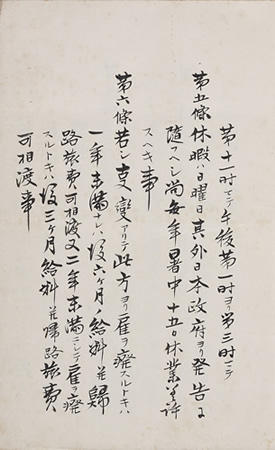 第十一时マデ午後第一时ヨリ第三时マデ
第五條休暇ハ日曜日其外日本政府ヨリ発告ニ
随フヘシ尚毎年暑中十五日休業ヲ許
スヘキ事
第六條若シ事変アリテ此方ヨリ雇ヲ廃スルトキハ
一年未満ナレハ後六ケ月ノ給料并歸
路旅費可相渡又二年未満ニシテ雇ヲ廃
スルトキハ後三ケ月給料并帰路旅費
可相渡事